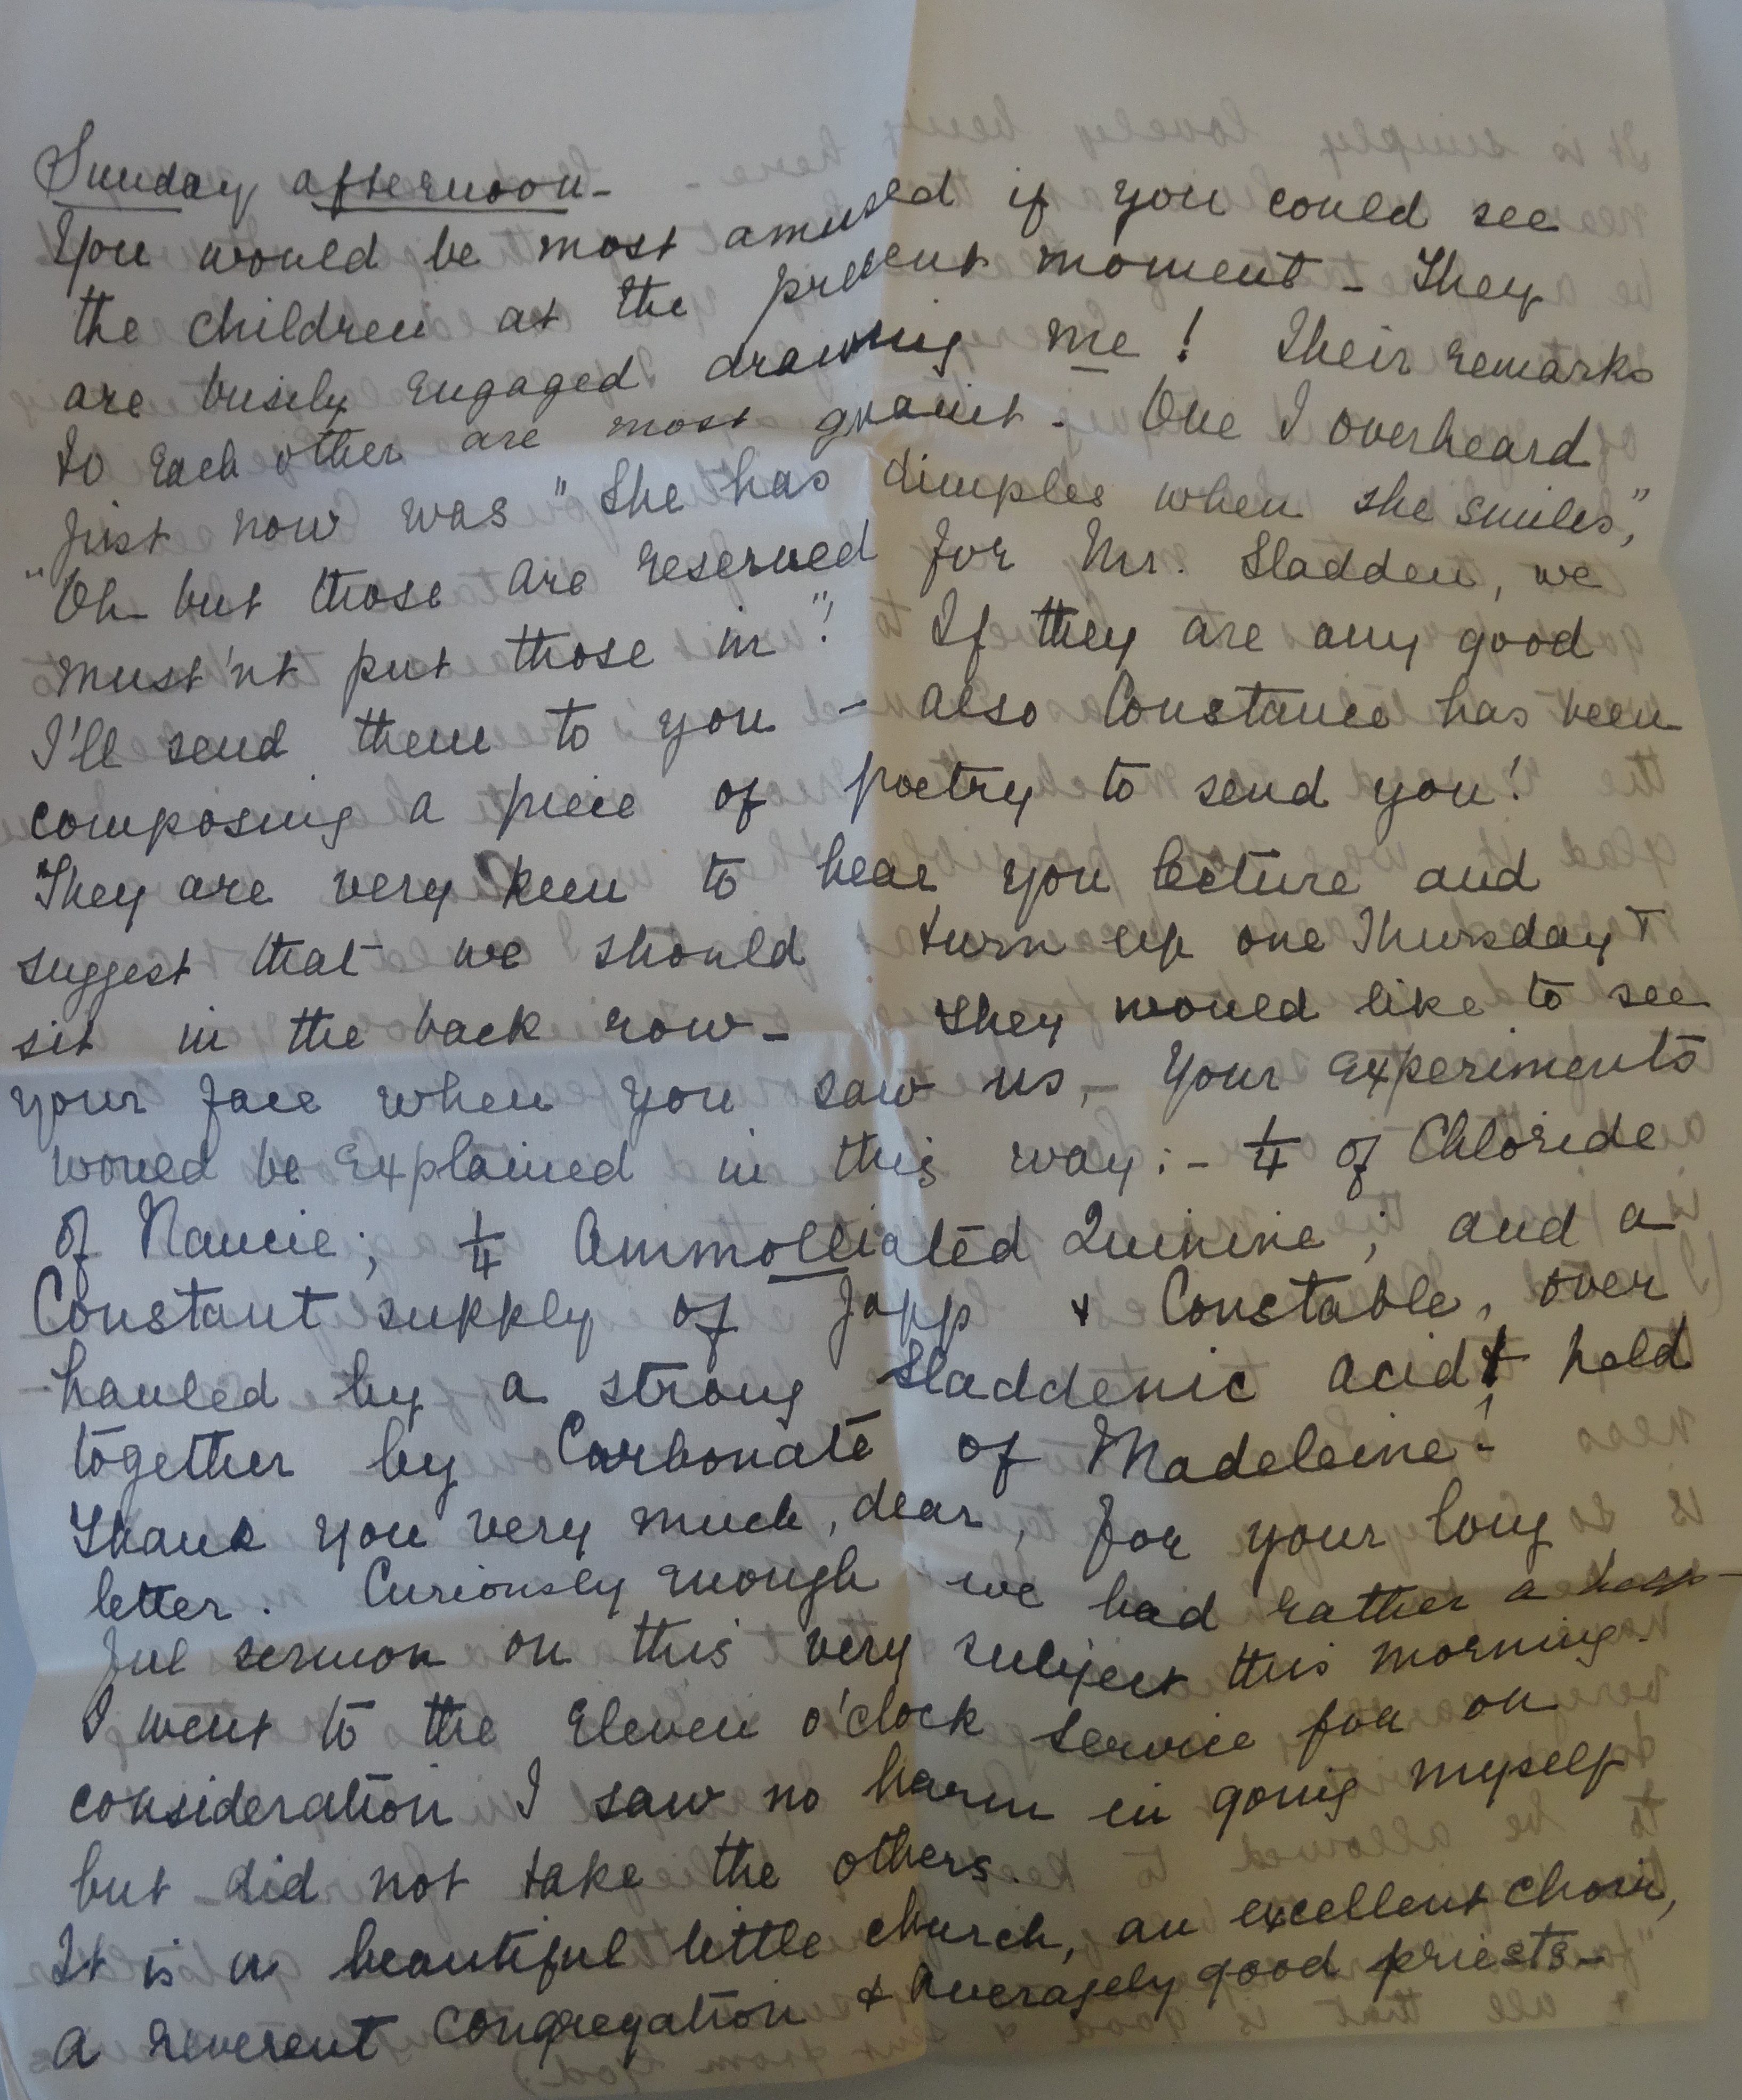 Sunday afternoon-
You would be most amused if you could see
the children at the present moment - They
are busily engaged drawing me! Their remarks
to each other are most quaint. One I overheard
just now was "She has dimples when she smiles,"
"Oh but those are reserved for Mr. Sladden, we
must'nt put those in"! If they are any good
I'll send them to you - also Constance has been
composing a piece of poetry to send you!
They are very keen to hear you lecture and
suggest that we should turn up one Thursday +
sit in the back row- They would like to see
your face when you saw us, - Your experiments
would be explained in this way:- 1/4 of Chloride
of Nancie; 1/4 Ammolliated Quinine; and a
Constant supply of Japp & Constable, over
hauled by a strong Sladdenic acid & held
together by Carbonate of Madeleine!
Thank you very much, dear, for your long
letter. Curiously enough we had rather a help-
ful sermon on this very subject this morning.
I went to the Eleven o'clock service for on
consideration I saw no harm in going myself
but did not take the others.
It is a beautiful little church, an excellent choir,
a reverent congregation & averagely good priests-